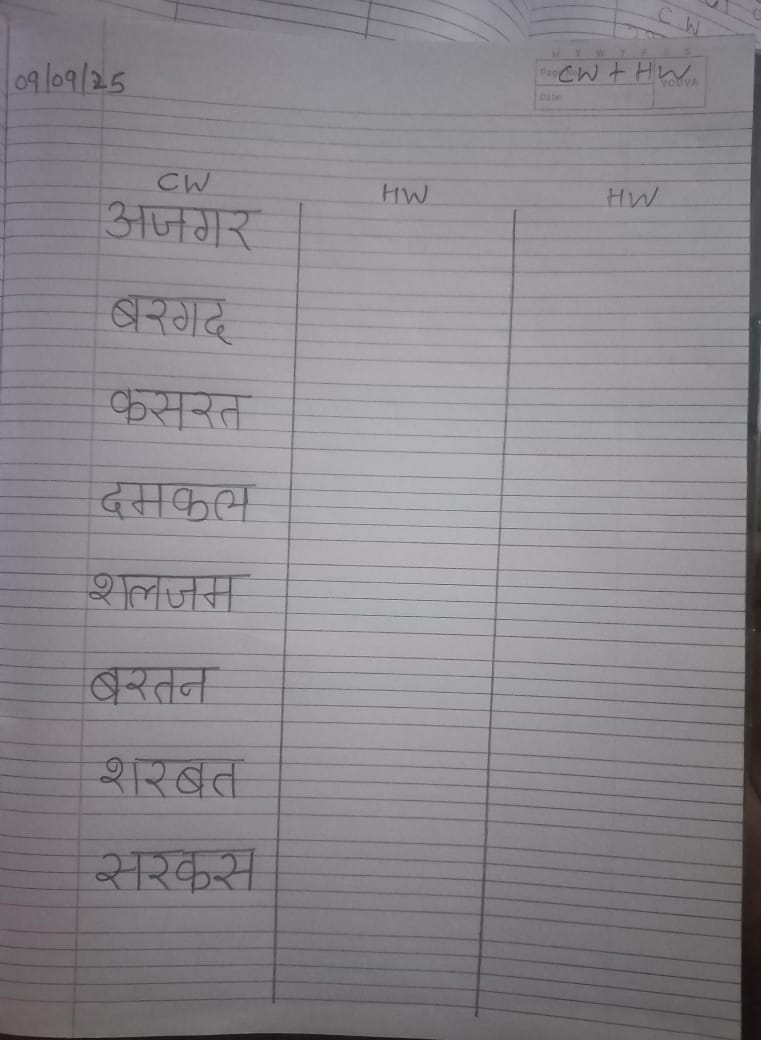 CW
M T W T F S S
09/09/25
Page No. CW + HW
YOUVA
Date:
CW HW HW
अजगर
बरगद
कसरत
दमकल
शलजम
बरतन
शरबत
सरकस